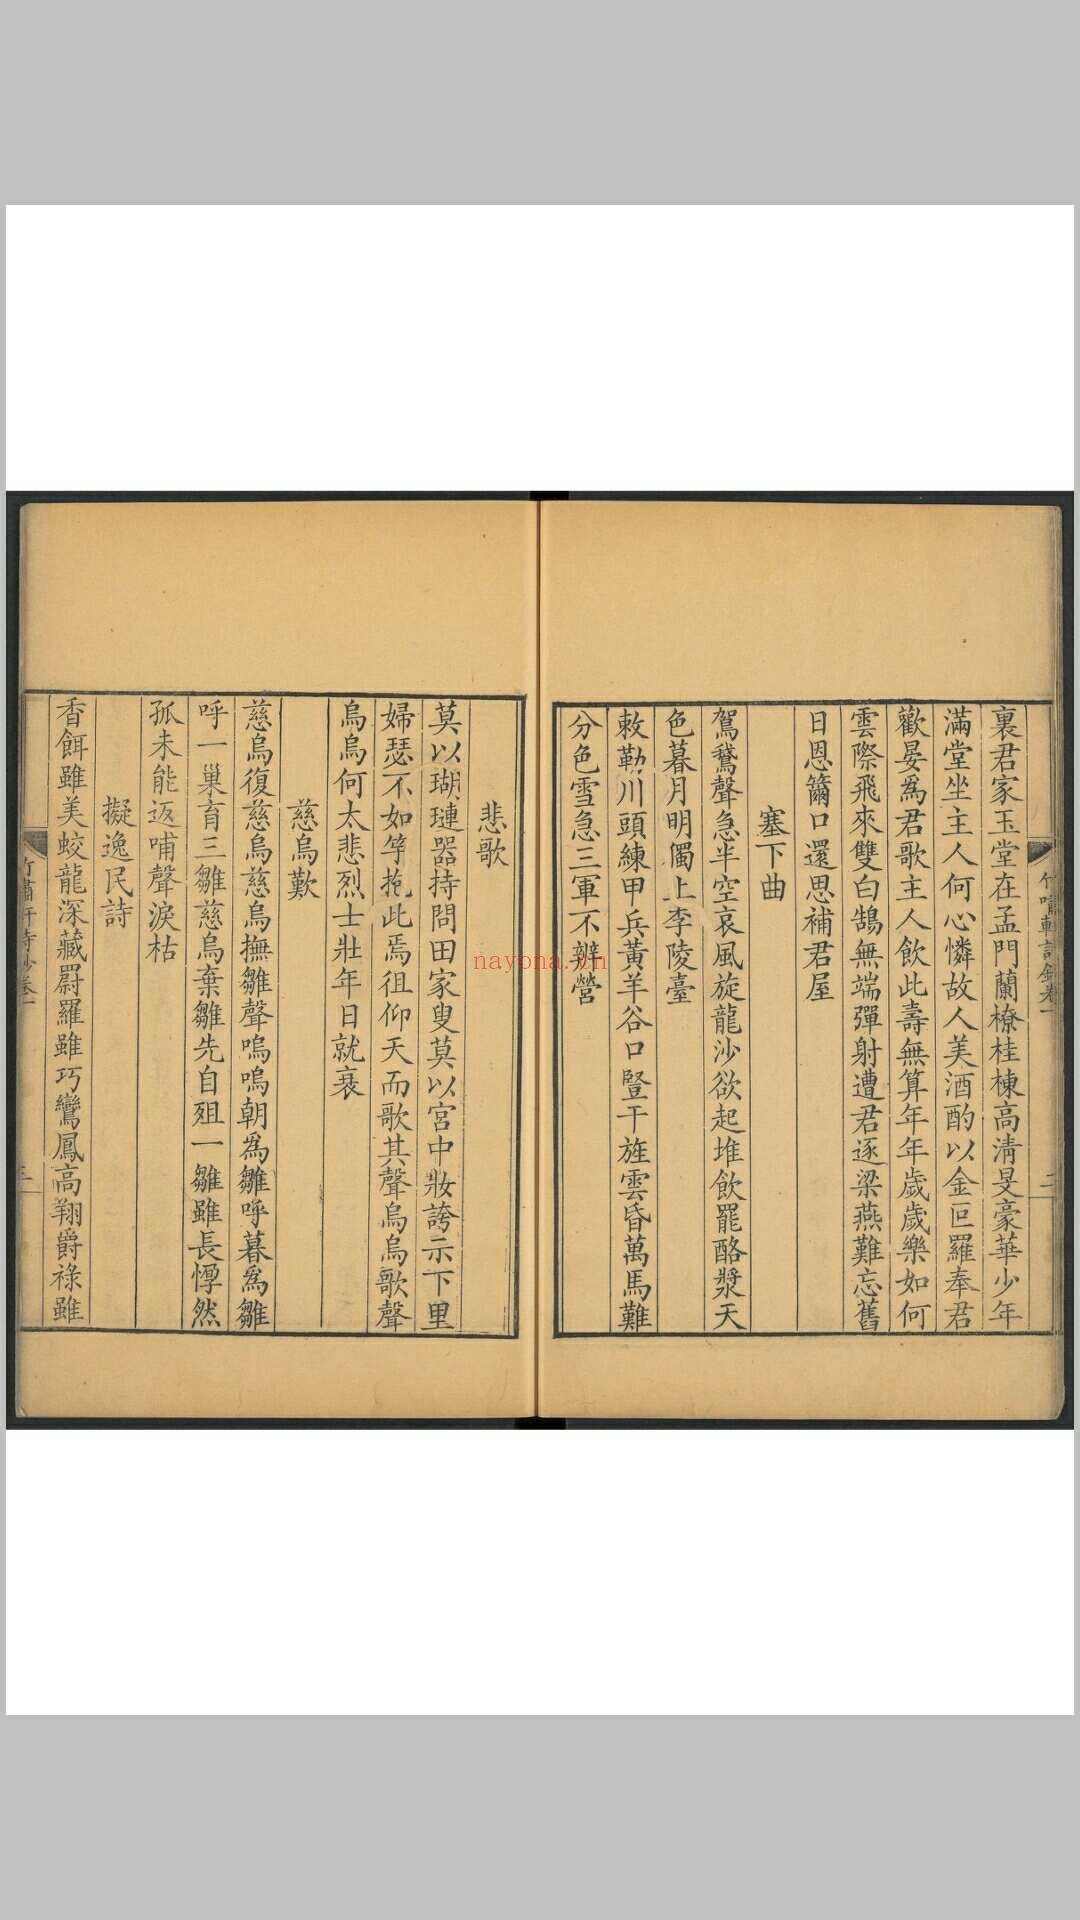 裏君家玉堂在孟門蘭橑桂棟高清旻豪華少年
滿堂坐主人何心憐故人美酒酌以金叵羅奉君
歡晏為君歌主人飲此壽無算年年歲歲樂如何
雲際飛來雙白鵠無端彈射遭君逐梁燕難忘舊
日恩籋口還思補君屋
塞下曲
駕鵞聲急半空哀風旋龍沙欲起堆飲罷酪漿天
色暮月明獨上李陵臺
敕勒川頭練甲兵黃羊谷口豎干旌雲昏萬馬難
分色雪急三軍不辨營
悲歌
莫以瑚璉器持問田家叟莫以宮中妝誇示下里
婦瑟不如竽抱此焉徂仰天而歌其聲烏烏歌聲
烏烏何太悲烈士壯年日就衰
慈烏歎
慈烏復慈烏慈烏撫雛聲嗚嗚朝為雛呼暮為雛
呼一巢育三雛慈烏棄雛先自殂一雛雖長惸然
孤未能返哺聲淚枯
擬逸民詩
香餌雖美蛟龍深藏罻羅雖巧鸞鳳高翔爵祿雖
竹嘯軒詩鈔卷一
二
竹嘯軒詩鈔卷一
三
nayona.cn